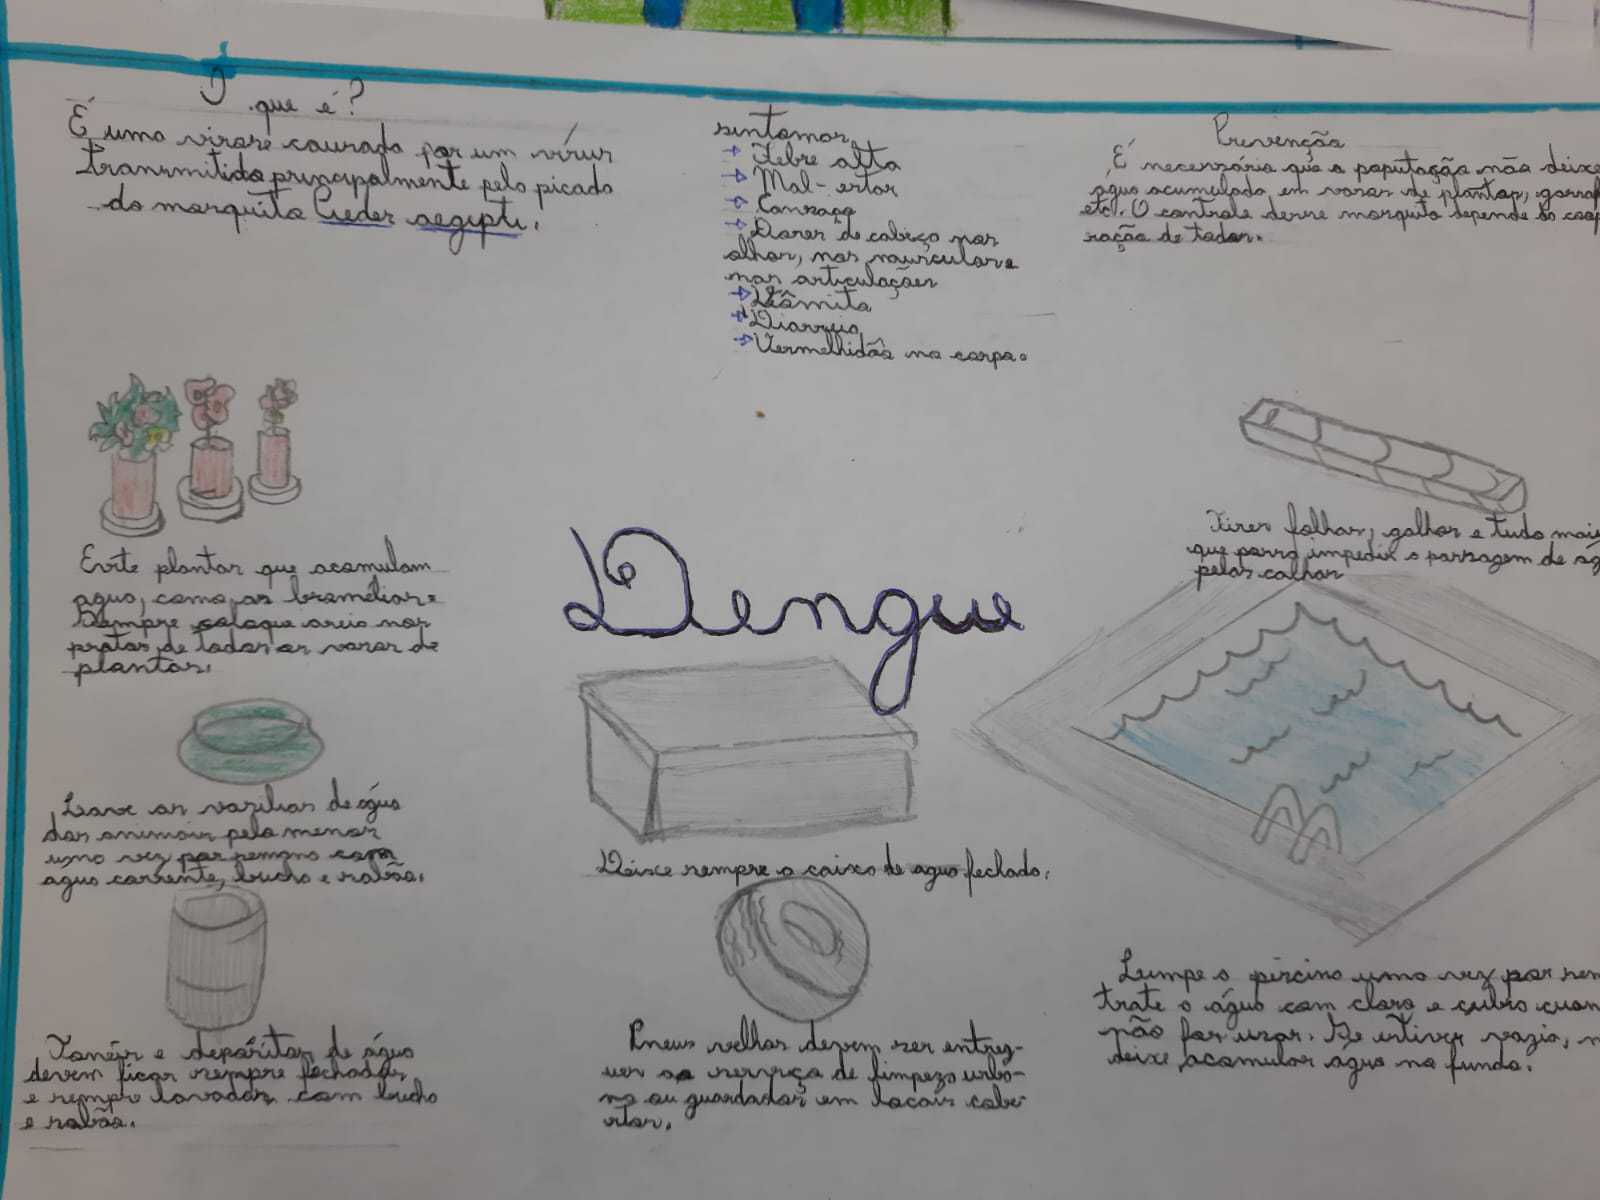 O que é?
É uma virose causada por um vírus
transmitida principalmente pela picada
do mosquito Aedes aegipti.
sintomas
→ Febre alta
→ Mal-estar
→ Cansaço
→ Dores de cabeça nos
olhos, nos musculos e
nas articulações
→ Vômito
→ Diarreia
→ Vermelhidão no corpo.
Prevenção
É necessário que a população não deixe
agua acumulada em vasos de plantas, garraf
etc. O controle desse mosquito depende da coop
ração de todos.
Evite plantas que acumulam
agua, como as bromélias.
Sempre coloque areia nos
pratos de todos os vasos de
plantas.
Tires folhas, galhos e tudo mais
que possa impedir a passagem de ág
pelas calhas
Dengue
Lave as vasilhas de água
dos animais pelo menos
uma vez por semana com
agua corrente, bucha e sabão.
Deixe sempre a caixa de agua fechada.
Tonéis e depósitos de água
devem ficar sempre fechados
e sempre lavados com bucha
e sabão.
Pneus velhos devem ser entreg-
ues ao serviço de limpeza urba-
na ou guardados em locais cober-
tos.
Limpe a piscina uma vez por sem
trate a água com cloro e cubra quan
não for usar. Se estiver vazia, n
deixe acumular agua no fundo.